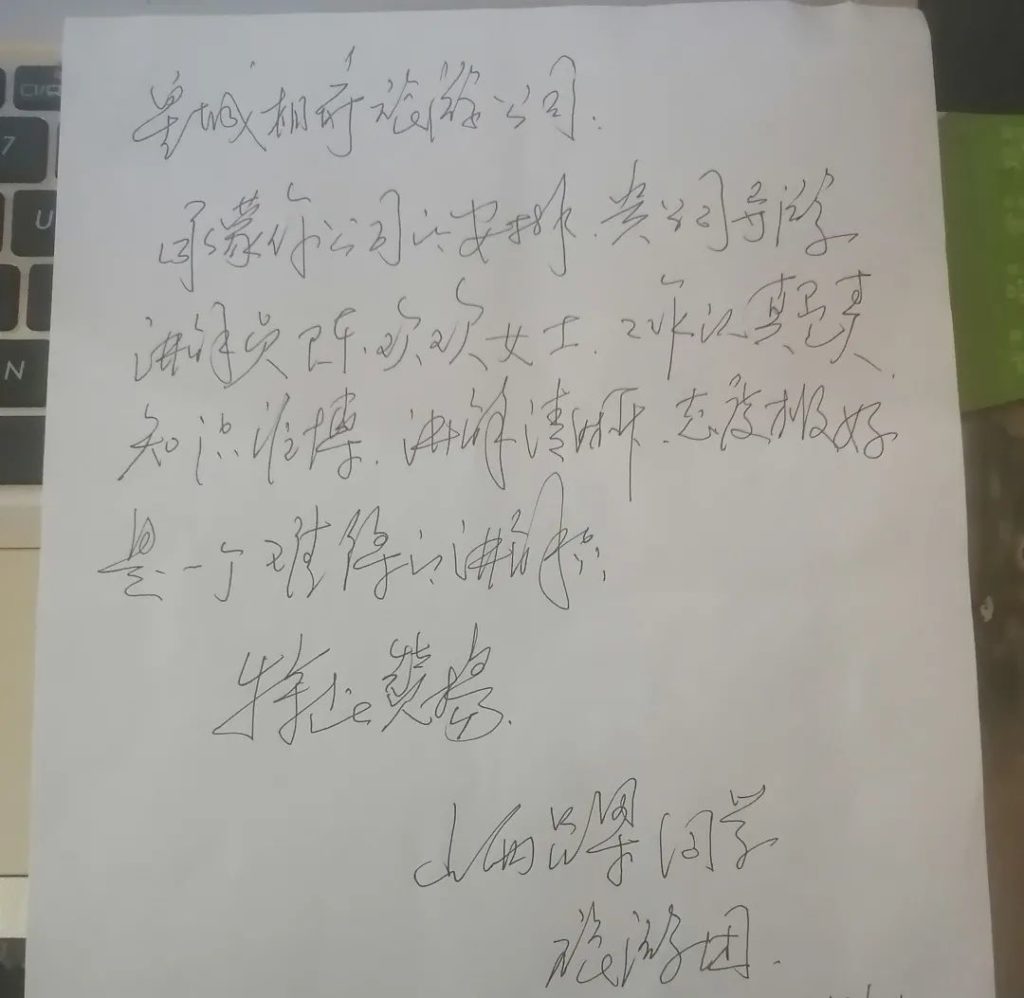 皇城相府旅游公司.
承蒙你公司的安排.贵公司导游
讲解员 欢欢女士.工作认真负责,
知识 博.讲解清晰.态度极好
是一个难得的讲解员.
特此赞扬.
山西吕梁同学
旅游团.
CI/Q
7
U
N